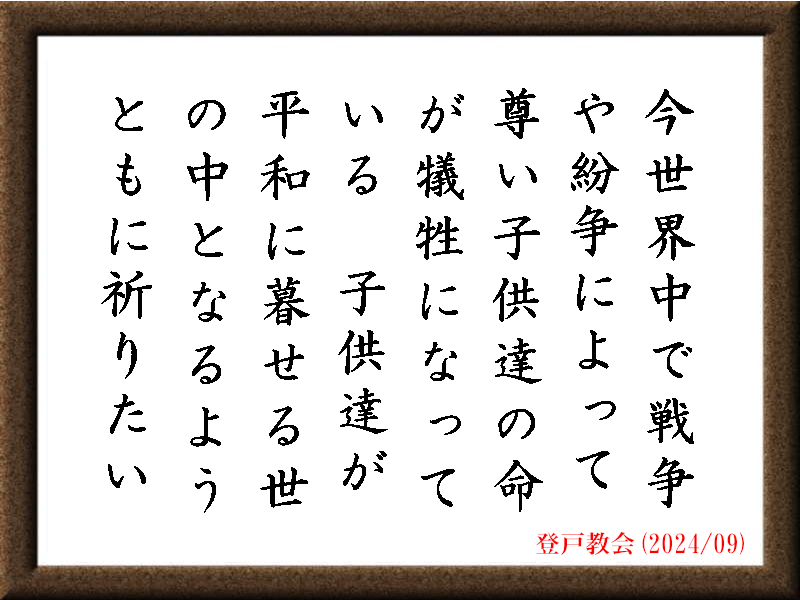 今世界中で戦争
や紛争によって
尊い子供達の命
が犠牲になって
いる　子供達が
平和に暮せる世
の中となるよう
ともに祈りたい
登戸教会(2024/09)